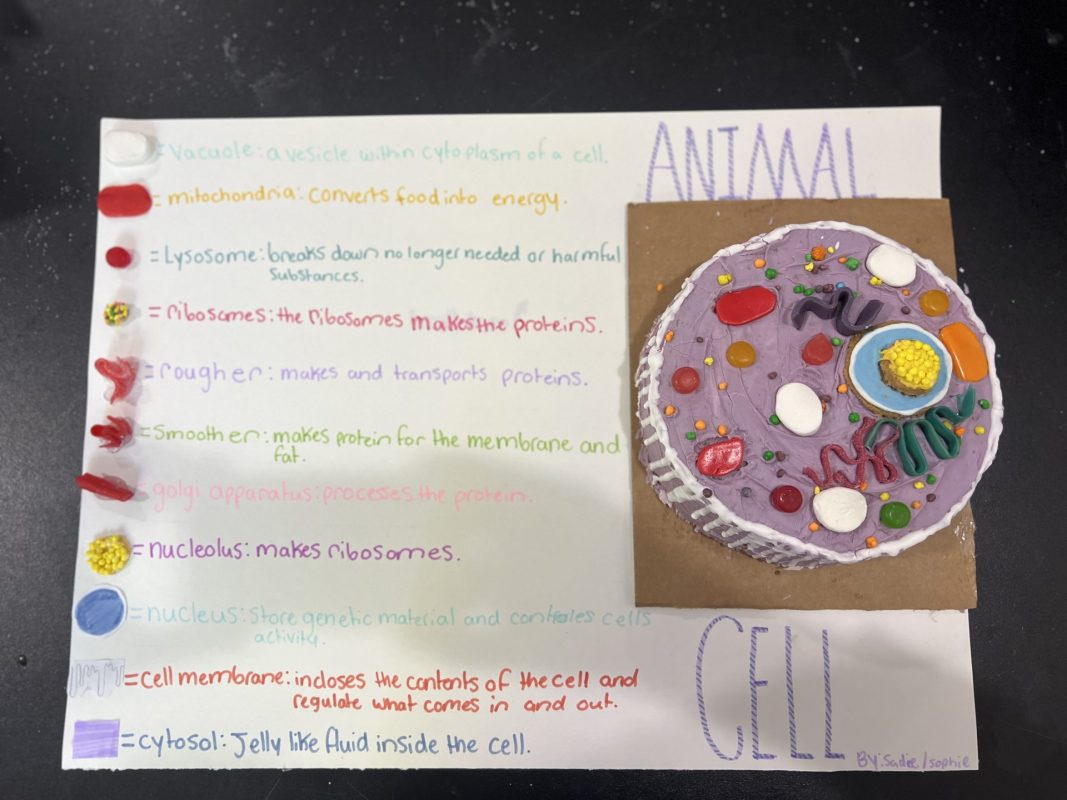 ANIMAL
= Vacuole: a vesicle within cytoplasm of a cell.
= mitochondria: converts food into energy.
= Lysosome: breaks down no longer needed or harmful
substances.
= ribosomes: the ribosomes makes the proteins.
= rough er: makes and transports proteins.
= Smooth er: makes protein for the membrane and
fat.
= golgi apparatus: processes the protein.
= nucleolus: makes ribosomes.
= nucleus: Store genetic material and controles cells
activity.
= cell membrane: incloses the contents of the cell and
regulate what comes in and out.
= cytosol: Jelly like fluid inside the cell.
CELL
BY: Sadie / sophie